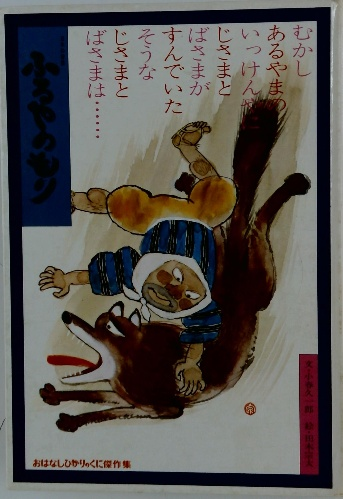 むかし
あるやまの
いっけんや
じさまと
ばさまが
すんでいた
そうな
じさまと
ばさまは……
ふるやのもり
おはなしひかりのくに傑作集